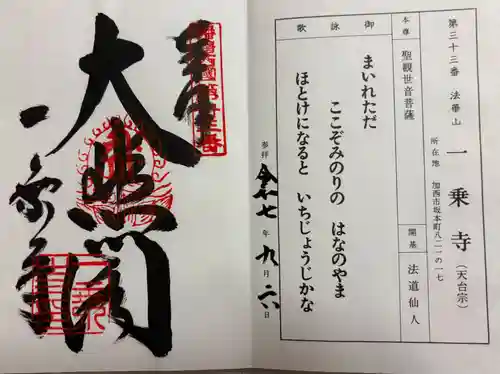 第三十三番 法華山 一乗寺 (天台宗)
所在地 加西市坂本町八二一の一七
本尊 聖観世音菩薩
開基 法道仙人
御詠歌
まいれただ
ここぞみのりの はなのやま
ほとけになると いちじょうじかな
参拝 令和七年九月六日
奉拝
大悲閣
一乗寺